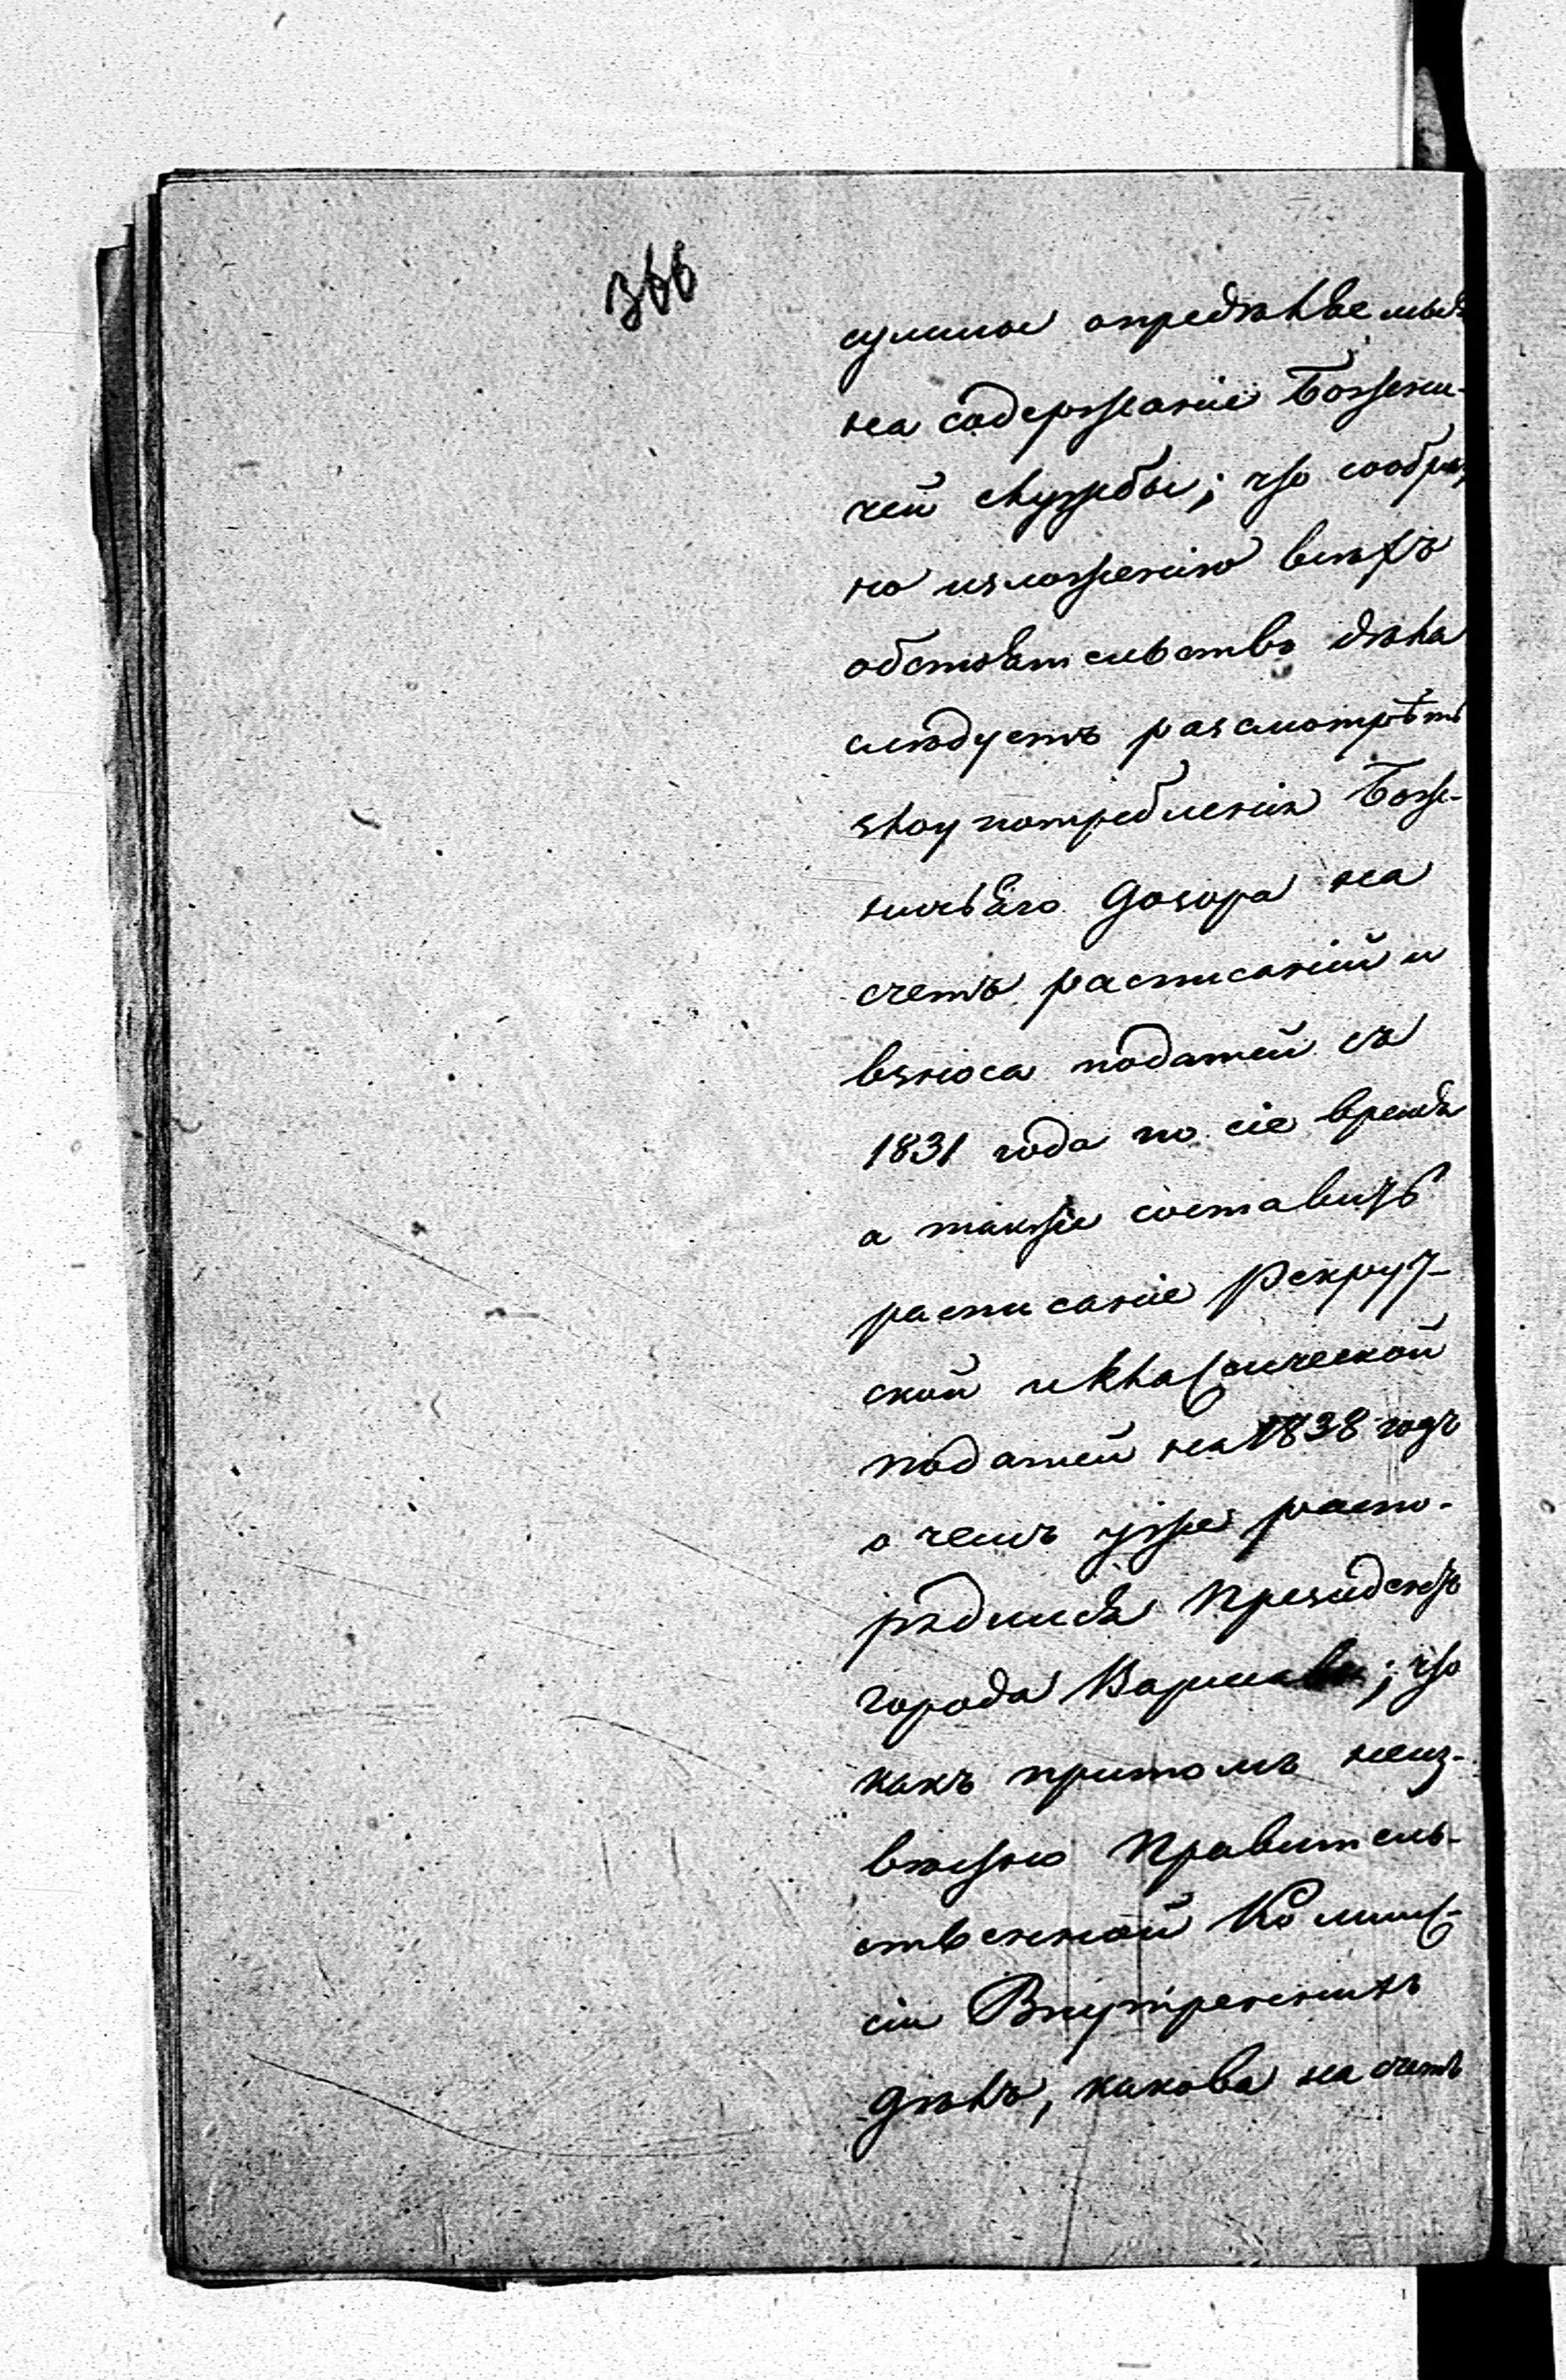 366
суммою опредѣляемыя
на содержаніе Божни-
чей службы; что сообраз
но изложенію всѣхъ
обстоятельствъ дѣла
слѣдуетъ разсмотрѣть
злоупотребленія Бож-
ничьяго Дозора на
счетъ расписаній и
взноса податей съ
1831 года по сіе время
а также составить
расписаніе Рекрут-
ской и Классической
податей на 1838 годъ
о чемъ уже распо-
рядился Президентъ
города Варшавы; что
какъ притомъ неиз-
вѣстно Правитель-
ственной Коммис-
сіи Внутреннихъ
Дѣлъ, какова на счетъ